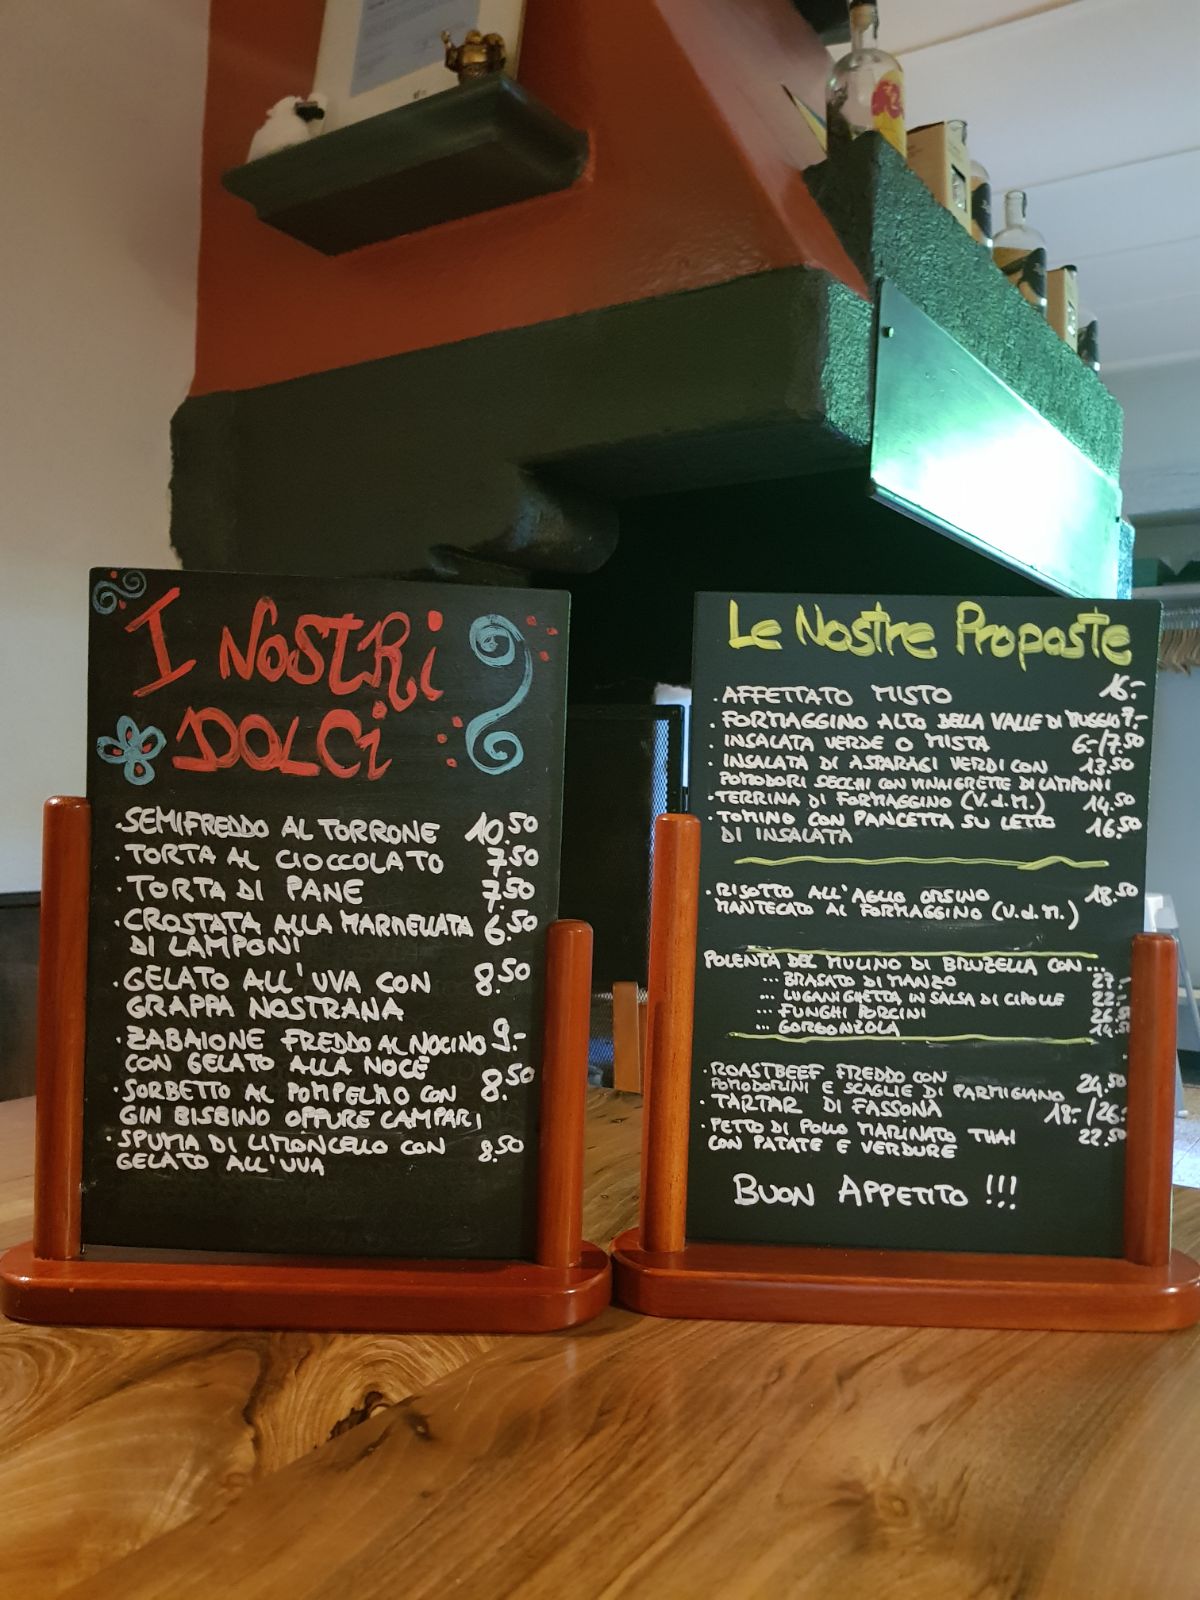 I NOSTRi
DOLCi
·SEMIFREDDO AL TORRONE 10.50
·TORTA AL CIOCCOLATO 7.50
·TORTA DI PANE 7.50
·CROSTATA ALLA MARMELLATA 6.50
DI LAMPONI
·GELATO ALL'UVA CON 8.50
GRAPPA NOSTRANA
·ZABAIONE FREDDO AL NOCINO 9.-
CON GELATO ALLA NOCE
·SORBETTO AL POMPELMO CON 8.50
GIN BISBINO OPPURE CAMPARI
·SPUMA DI LIMONCELLO CON 8.50
GELATO ALL'UVA
Le Nostre Proposte
·AFFETTATO MISTO 16.-
·FORMAGGINO ALTO DELLA VALLE DI MUGGIO 9.-
·INSALATA VERDE O MISTA 6.-/7.50
·INSALATA DI ASPARAGI VERDI CON 13.50
POMODORI SECCHI CON VINAIGRETTE DI LAMPONI
·TERRINA DI FORMAGGINO (V.d.M.) 14.50
·TOMINO CON PANCETTA SU LETTO 16.50
DI INSALATA
·RISOTTO ALL'AGLIO ORSINO 18.50
MANTECATO AL FORMAGGINO (V.d.M.)
POLENTA DEL MULINO DI BRUZELLA CON...
... BRASATO DI MANZO 27.-
... LUGANIGHETTA IN SALSA DI CIPOLLE 22.-
... FUNGHI PORCINI 26.50
... GORGONZOLA 14.50
·ROASTBEEF FREDDO CON 24.50
POMODORINI E SCAGLIE DI PARMIGIANO
·TARTAR DI FASSONA 18.-/26.-
·PETTO DI POLLO MARINATO THAI 22.50
CON PATATE E VERDURE
BUON APPETITO !!!